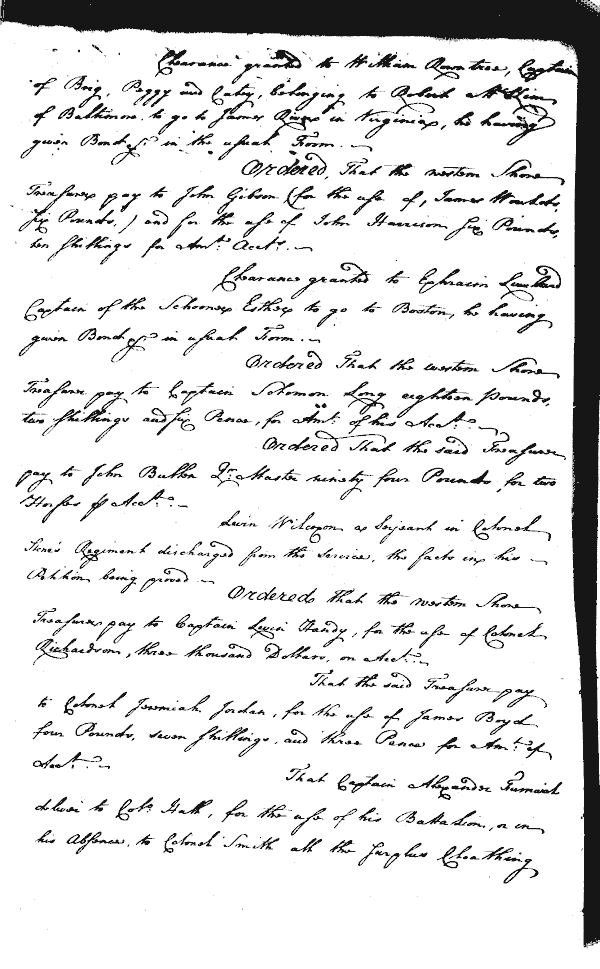 Clearance granted to William Rowntree, Captain
of Brig, Peggy and Caty, belonging to Robert
of Baltimore to go to James River in Virginia, he having
given Bond &c in the usual Form.
Ordered, That the western Shore
Treasurer pay to John Gibson (for the use of, James
Six Pounds,) and for the use of John Harrison Six Pounds,
ten shillings for Amt. Acct.
Clearance granted to Ephraim
Captain of the Schooner Esther to go to Boston, he having
given Bond &c in usual Form.
Ordered That the western Shore
Treasurer pay to Captain Solomon Long eighteen Pounds,
two shillings and six Pence, for Amt. of his Acct.
Ordered That the said Treasurer
pay to John Bullen Qr. Master ninety four Pounds, for two
Horses Acct.
Levin Wilcoxon a Serjeant in Colonel
Regiment discharged from the Service, the facts in his
Petition being proved
Ordered that the western Shore
Treasurer pay to Captain Levin Handy, for the use of Colonel
Richardson, three thousand Dollars, on Acct.
That the said Treasurer pay
to Colonel Jeremiah Jordan, for the use of James Boyd
four Pounds, seven shillings, and three Pence for Amt. of
Acct.
That Captain Alexander
deliver to Colo. Hall, for the use of his Battalion, or in
his Absence, to Colonel Smith all the surplus Cloathing